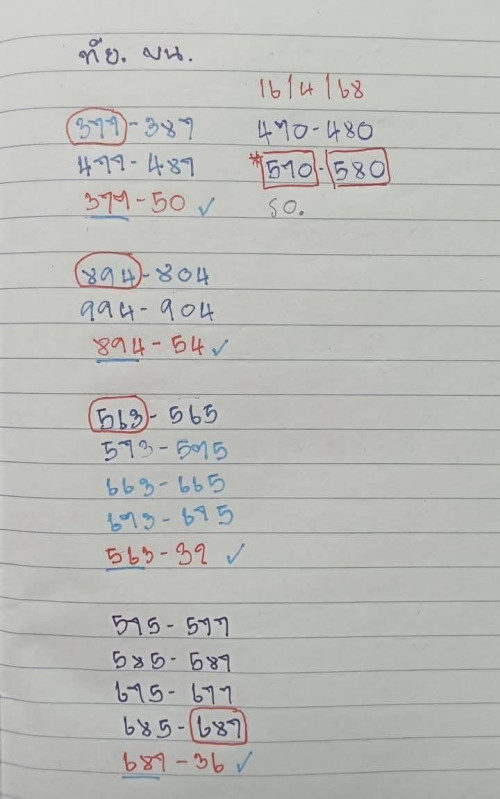 ทีย. บน.
16/4/68
377-387 470-480
477-487 *570-580
377-50 ✓ รอ.
894-804
994-904
894-54 ✓
563-565
573-575
663-665
673-675
563-32 ✓
575-577
585-587
675-677
685-687
687-36 ✓